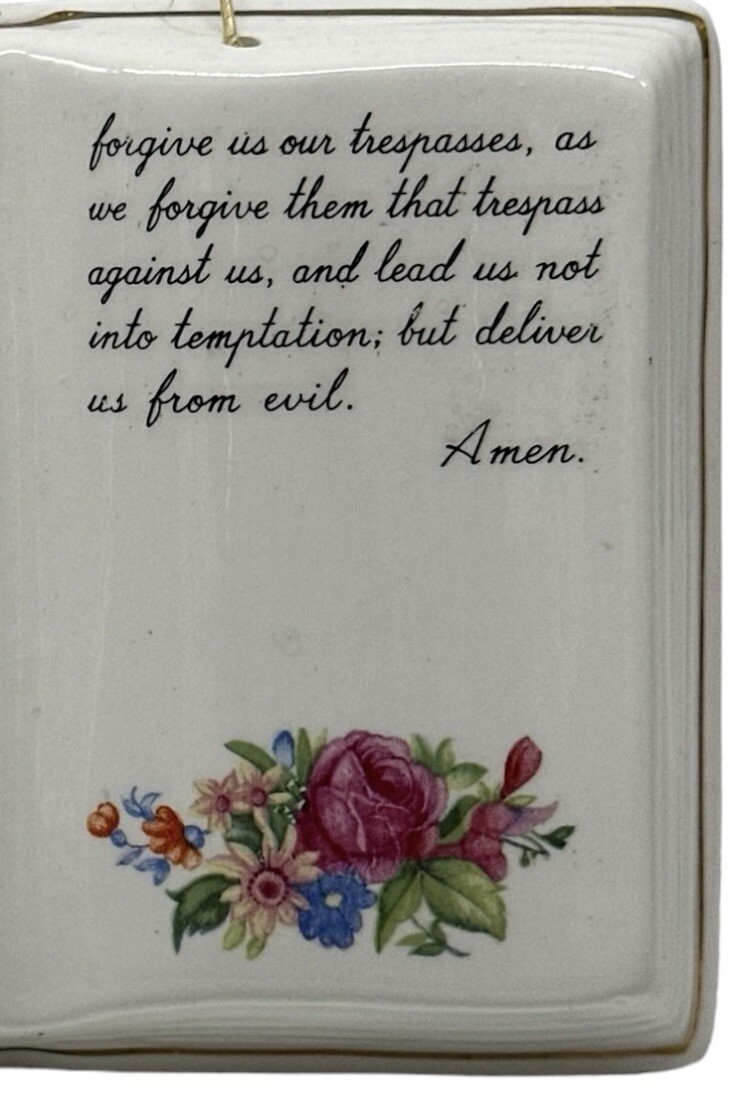 forgive us our trespasses, as
we forgive them that trespass
against us, and lead us not
into temptation; but deliver
us from evil.
Amen.